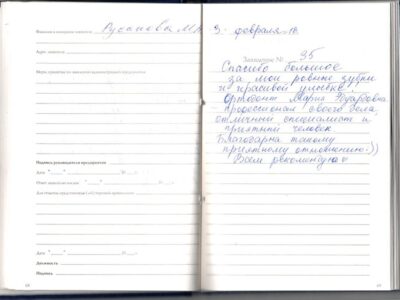 Фамилия и инициалы заявителя Русакова М.А
Адрес заявителя
Меры, принятые по заявлению администрацией предприятия
Подпись руководителя предприятия
Дата
Ответ заявителю послан
Для отметок
Дата
Должность
Подпись
68
3 февраля
Заявление № 35
Спасибо большое
за мои ровные зубки
и красивой улыбке!
Ортодонт Мария Эдуардовна
профессионал своего дела,
отличный специалист и
приятный человек
Благодарна такому
приятному отношению:))
Всем рекомендую
69